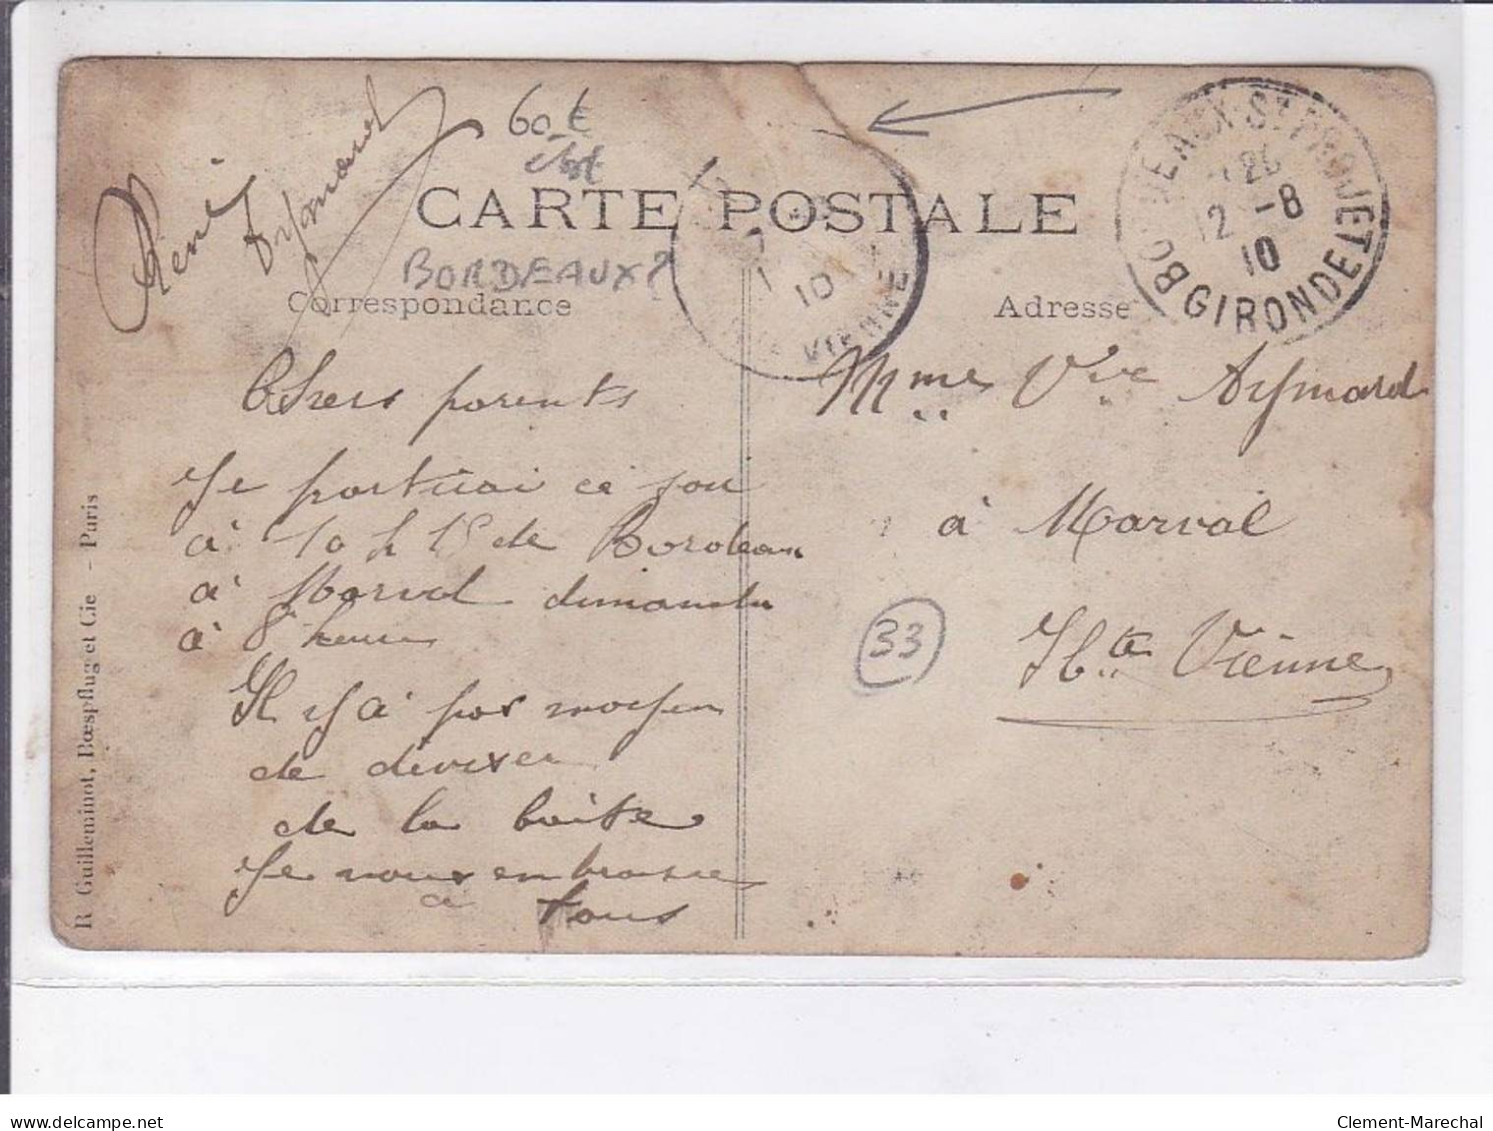 René
Aymard
60 €
CARTE POSTALE
BORDEAUX?
Correspondance
Adresse
VIENNE
10
BORDEAUX-ST PROJET
12 -8
10
GIRONDE
Chers parents
Je partirai ce soir
à 10 h 15 de Bordeau
à Marval dimanche
à 8 heures
Il y a pas moyen
de
de la boite
Je vous embrasse
à tous
Mme Vve Aymard
à Marval
Hte Vienne
33
R Guilleminot, Bœspflug et Cie - Paris
delcampe.net
Clement-Marechal